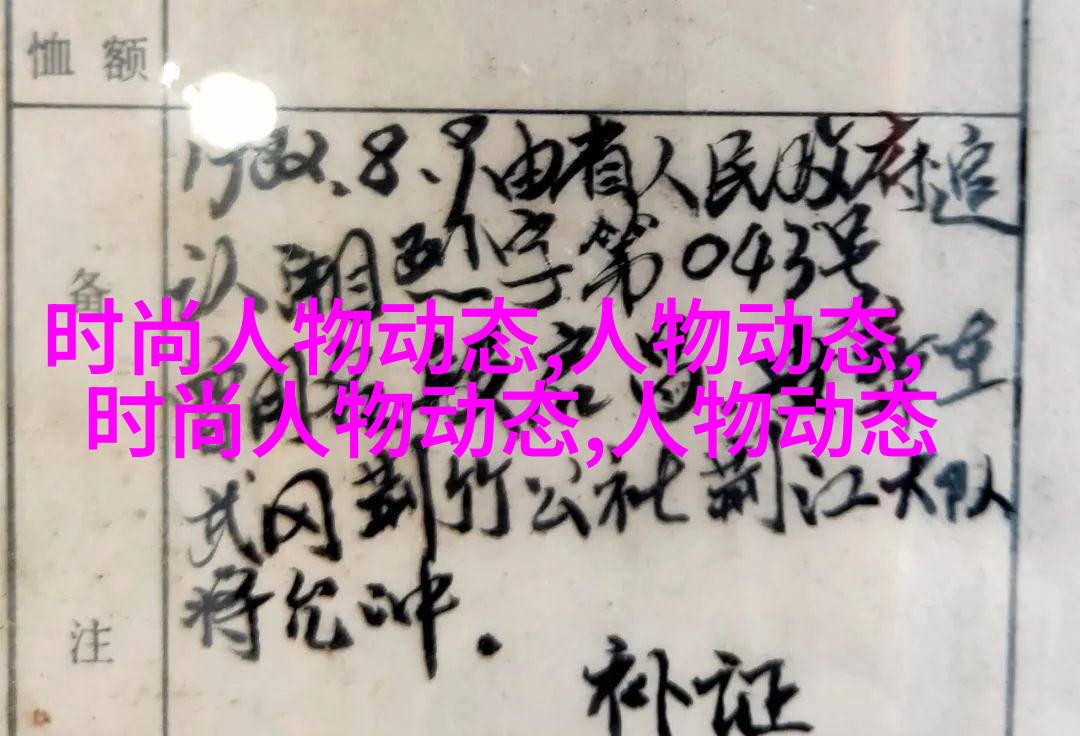 恤额
备
注
1982.8.9由省人民政府追
认湘烈字第043号
时尚人物动态,人物动态,
时尚人物动态,人物动态
武冈荆竹公社荆江大队
蒋允冲.
补证